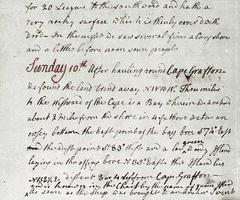 for 20 Leagues to the southward and hath a
very rocky surface which is thinly cover'd with
Wood. In the night we saw several fires along shore
and a little before noon some people
Sunday 10th After hauling round Cape Grafton
we found the land trend away N.W.b.W. Three miles
to the westward of the Cape is a Bay wherein we anchor'd
about 2 Miles from the shore in
oosey bottom. the East point of the bay bore S 74° East
the West point S 83° West and a low green
laying in the offing bore N 35° East this Island lies
distant 3 or 4 Leagues from Cape Grafton
and is known in the Chart by the name of green Island
as soon as the Ship was brought to an anchor I went